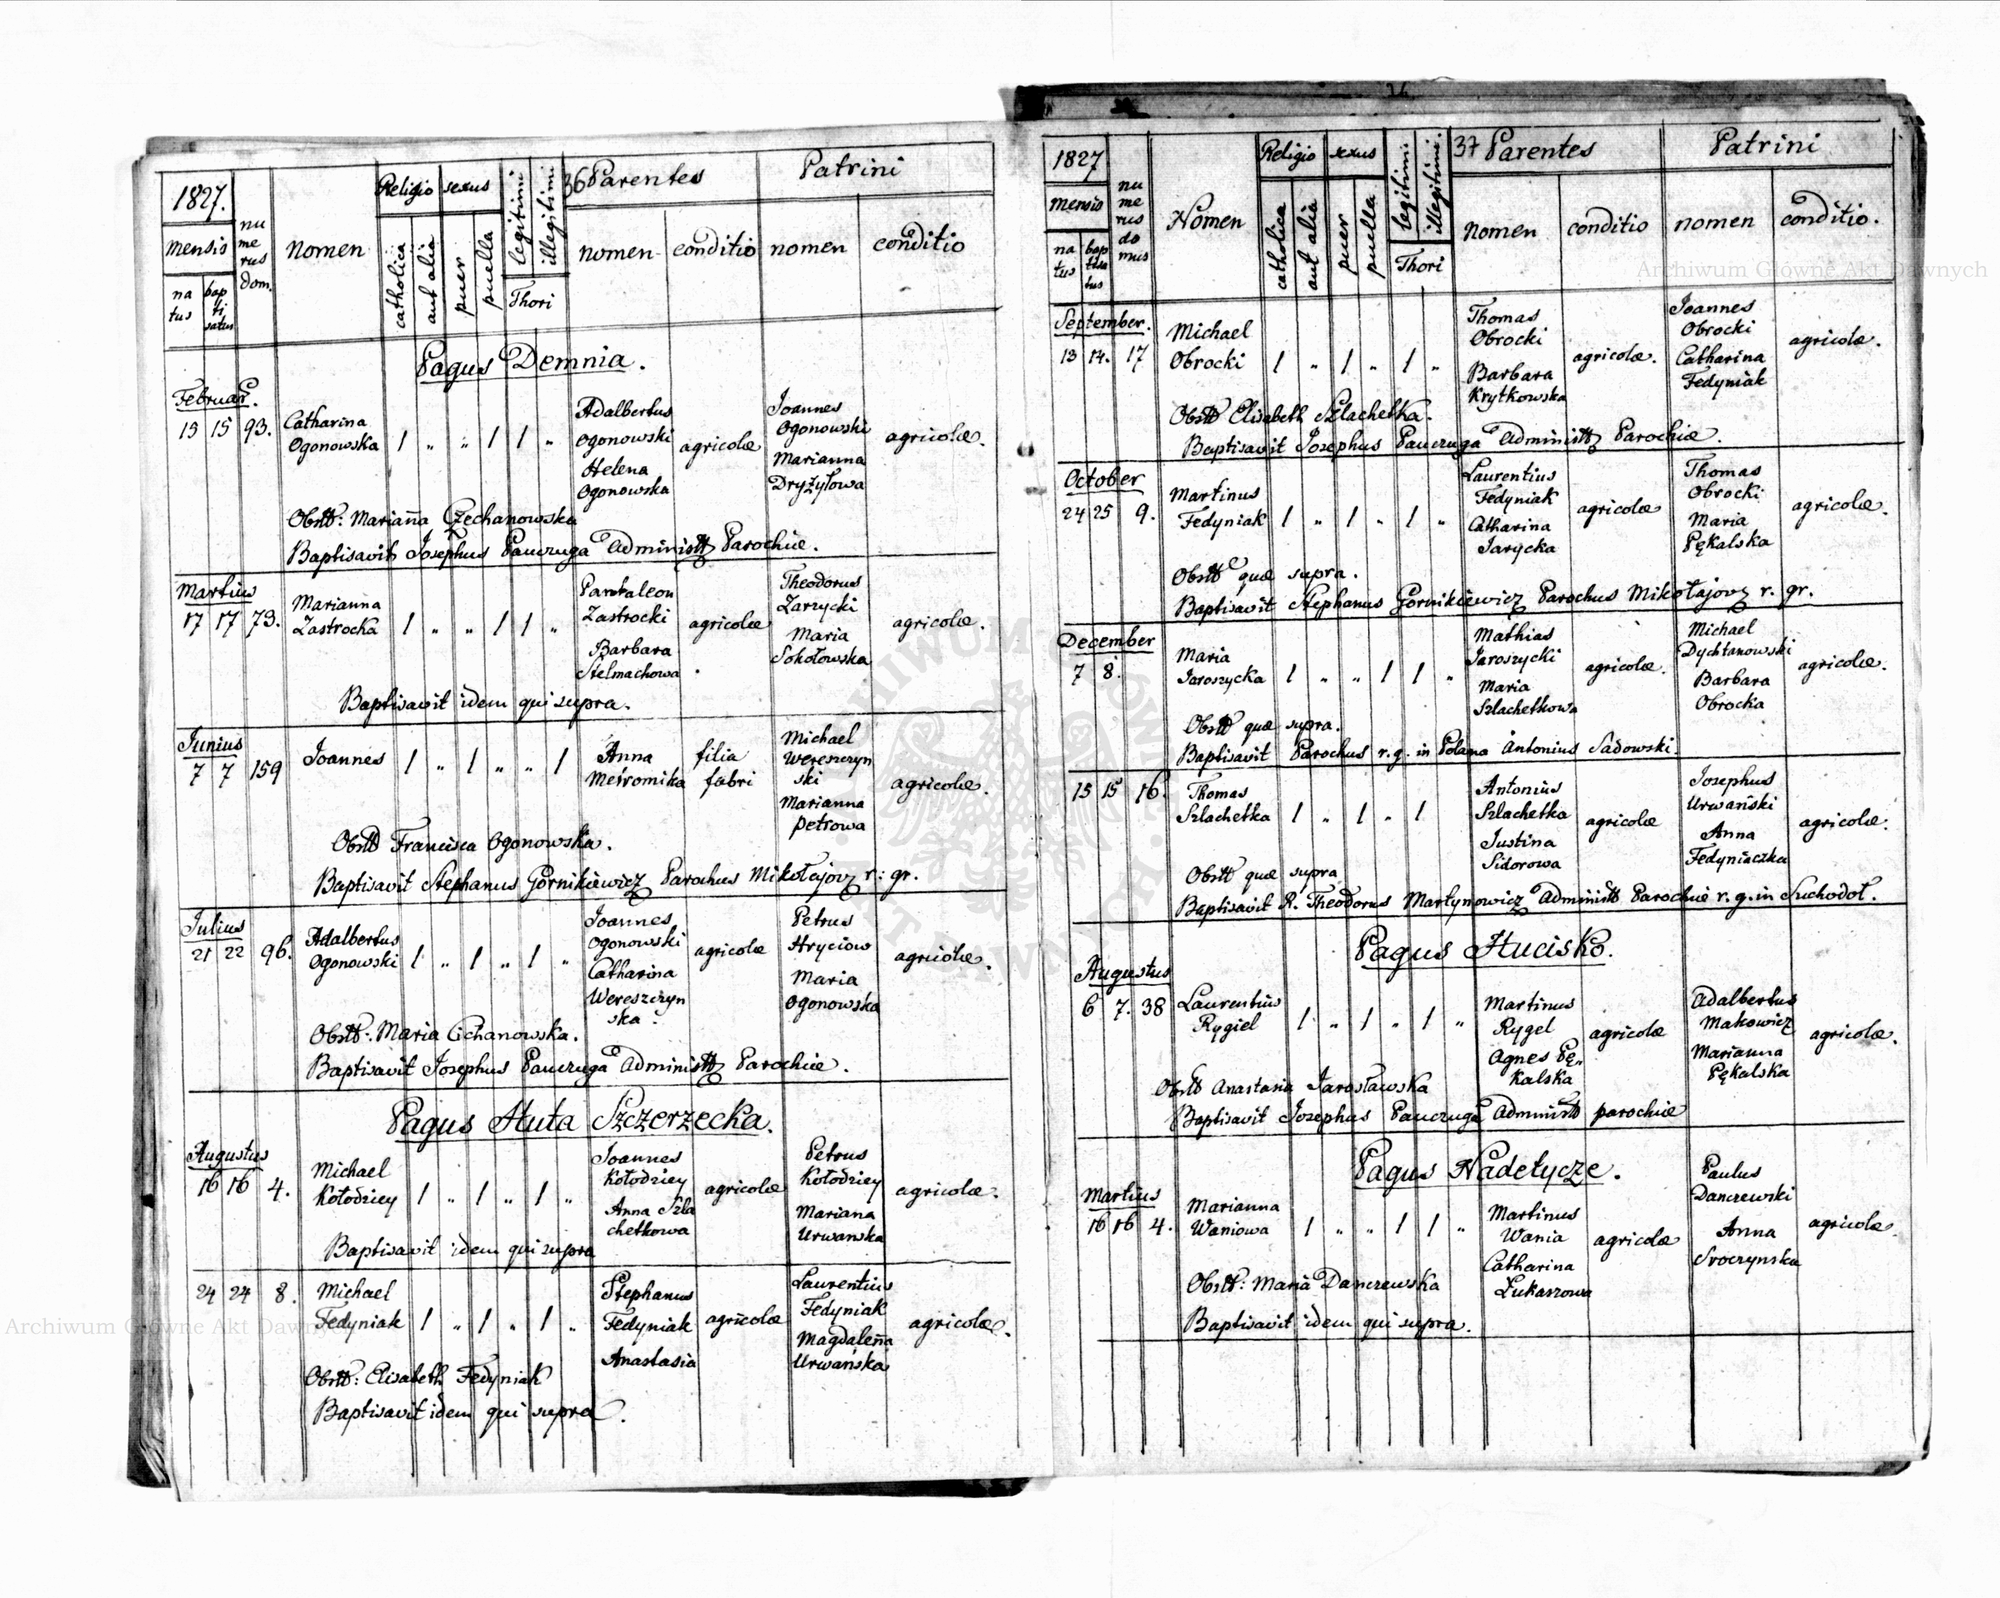 1827.
mensis
na
tus
bap
ti
satus
nu
me
rus
dom.
nomen
Religio
catholica
aut alia
sexus
puer
puella
legitimi
illegitimi
Thori
36 Parentes
nomen
conditio
Patrini
nomen
conditio
Pagus Demnia.
Februar.
15 15 93.
Catharina
Ogonowska
1 „ „ 1 1 „
Adalbertus
Ogonowski
Helena
Ogonowska
agricolæ
Joannes
Ogonowski
Marianna
Dryżyłowa
agricolæ.
Obstt: Marianna Czechanowska
Baptisavit Josephus Pauczuga Administr Parochiæ.
Martius
17 17 73.
Marianna
Zastrocka
1 „ „ 1 1 „
Pantaleon
Zastrocki
Barbara
Stelmachowa
agricolæ
Theodorus
Zarzycki
Maria
Sokołowska
agricolæ.
Baptisavit idem qui supra.
Junius
7 7 159
Joannes
1 „ 1 „ „ 1
Anna
Mesromika
filia
fabri
Michael
Wereszczyn
ski
Marianna
Petrowa
agricolæ.
Obstt Francisca Ogonowska.
Baptisavit Stephanus Gornikiewicz Parochus Mikołajov r. gr.
Julius
21 22 96.
Adalbertus
Ogonowski
1 „ 1 „ 1 „
Joannes
Ogonowski
Catharina
Wereszczyn
ska.
agricolæ
Petrus
Hryciow
Maria
Ogonowska
agricolæ.
Obstt: Maria Cichanowska.
Baptisavit Josephus Pauczuga Administr Parochiæ.
Pagus Huta Szczerzecka.
Augustus
16 16 4.
Michael
Kołodziey
1 „ 1 „ 1 „
Joannes
Kołodziey
Anna Szla
chetkowa
agricolæ
Petrus
Kołodziey
Mariana
Urwanska
agricolæ.
Baptisavit idem qui supra
24 24 8.
Michael
Fedyniak
1 „ 1 „ 1 „
Stephanus
Fedyniak
Anastasia
agricolæ
Laurentius
Fedyniak
Magdalena
Urwańska
agricolæ.
Obstt: Elisabeth Fedyniak
Baptisavit idem qui supra.
1827
mensis
na
tus
bap
tisa
tus
nu
me
rus
do
mus
Nomen
Religio
catholica
aut alia
sexus
puer
puella
legitimi
illegitimi
Thori
37 Parentes
nomen
conditio
Patrini
nomen
conditio.
September.
13 14. 17
Michael
Obrocki
1 „ 1 „ 1 „
Thomas
Obrocki
Barbara
Krytkowska
agricolæ.
Joannes
Obrocki
Catharina
Fedyniak
agricolæ.
Obstt Elisabeth Szlachetka.
Baptisavit Josephus Pauczuga Administr Parochiæ.
October
24 25 9.
Martinus
Fedyniak
1 „ 1 „ 1 „
Laurentius
Fedyniak
Catharina
Jarycka
agricolæ
Thomas
Obrocki
Maria
Pękalska
agricolæ.
Obstt quæ supra.
Baptisavit Stephanus Gornikiewicz Parochus Mikołajov r. gr.
December
7 8.
Maria
Jaroszycka
1 „ „ 1 1 „
Mathias
Jaroszycki
Maria
Szlachetkowa
agricolæ.
Michael
Dychtanowski
Barbara
Obrocka
agricolæ.
Obstt quæ supra.
Baptisavit Parochus r. g. in Polana Antonius Sadowski.
15 15 16.
Thomas
Szlachetka
1 „ 1 „ 1
Antonius
Szlachetka
Justina
Sidorowa
agricolæ
Josephus
Urwański
Anna
Fedyniaczka
agricolæ.
Obstt quæ supra
Baptisavit R. Theodorus Martynowicz Administr Parochiæ r. g. in Suchodoł.
Pagus Hucisko.
Augustus
6 7. 38
Laurentius
Rygiel
1 „ 1 „ 1 „
Martinus
Rygel
Agnes Pę„
kalska
agricolæ
Adalbertus
Makowicz
Marianna
Pękalska
agricolæ.
Obstt Anastasia Jarosławska
Baptisavit Josephus Pauczuga Administr parochiæ
Pagus Nadetycze.
Martius
16 16 4.
Marianna
Waniowa
1 „ „ 1 1 „
Martinus
Wania
Catharina
Łukaszowa
agricolæ
Paulus
Danczewski
Anna
Sroczynska
agricolæ.
Obstt: Maria Danczewska
Baptisavit idem qui supra.
Archiwum Główne Akt Dawnych
Archiwum Główne Akt Dawnych